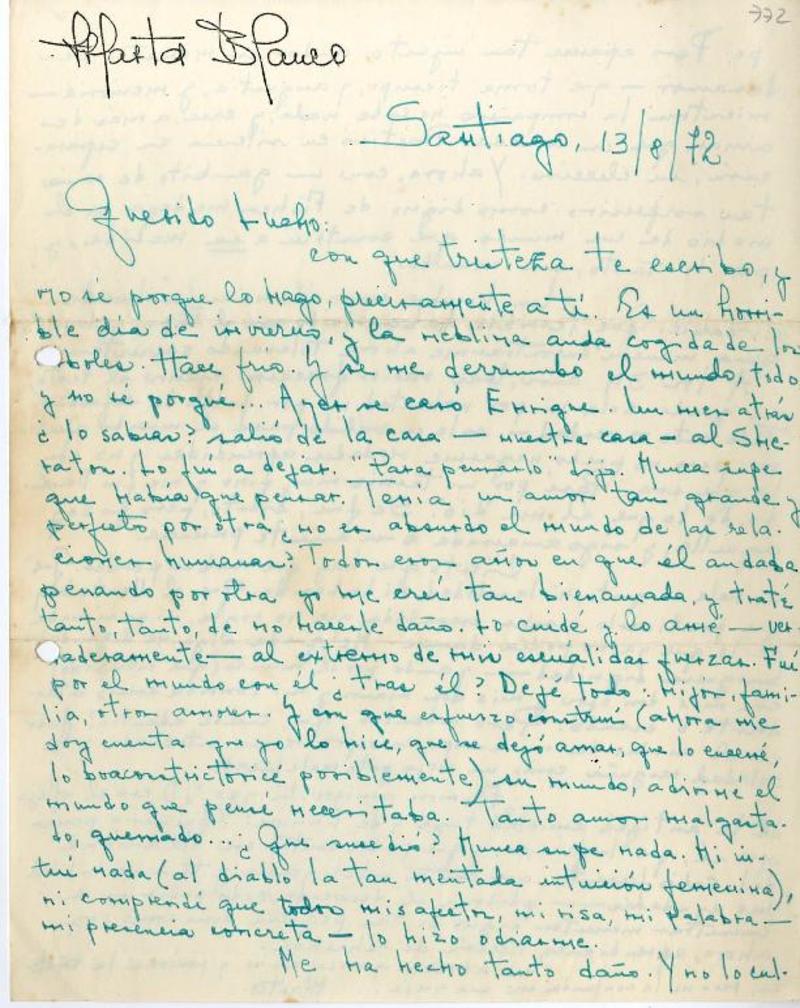 772
Marta Blanco
Santiago, 13/8/72
Querido Lucho:
con que tristeza te escribo, y
no sé porque lo hago, precisamente a tí. Es un horri-
ble día de invierno, y la neblina anda cogida de los
boles. Hace frío. Y se me derrumbó el mundo, todo
y no sé porqué... Ayer se casó Enrique. Un mes atrás
¿lo sabías? salió de la casa — nuestra casa — al She-
raton. Lo fui a dejar. "Para pensarlo" dijo. Nunca supe
que había que pensar. Tenía un amor tan grande y
perfecto por otra, ¿no es absurdo el mundo de las rela-
ciones humanas? Todos esos años en que él andaba
penando por otra yo me creí tan bienamada, y traté
tanto, tanto, de no hacerle daño. Lo cuidé y lo amé — ver-
aderamente — al extremo de mis escuálidas fuerzas. Fuí
por el mundo con él ¿tras él? Dejé todo: hijos, fami-
lia, otros amores. Y con que esfuerzo construí (ahora me
doy cuenta que yo lo hice, que se dejó amar, que lo encerré,
lo boaconstrictoricé posiblemente) su mundo, adiviné el
mundo que pensé necesitaba. Tanto amor malgasta-
do, quemado...¿Que sucedió? Nunca supe nada. Ni in-
tuí nada (al diablo la tan mentada intuición femenina),
ni comprendí que todos mis afectos, mi risa, mi palabra —
mi presencia concreta — lo hizo odiarme.
Me ha hecho tanto daño. Y no lo cul-